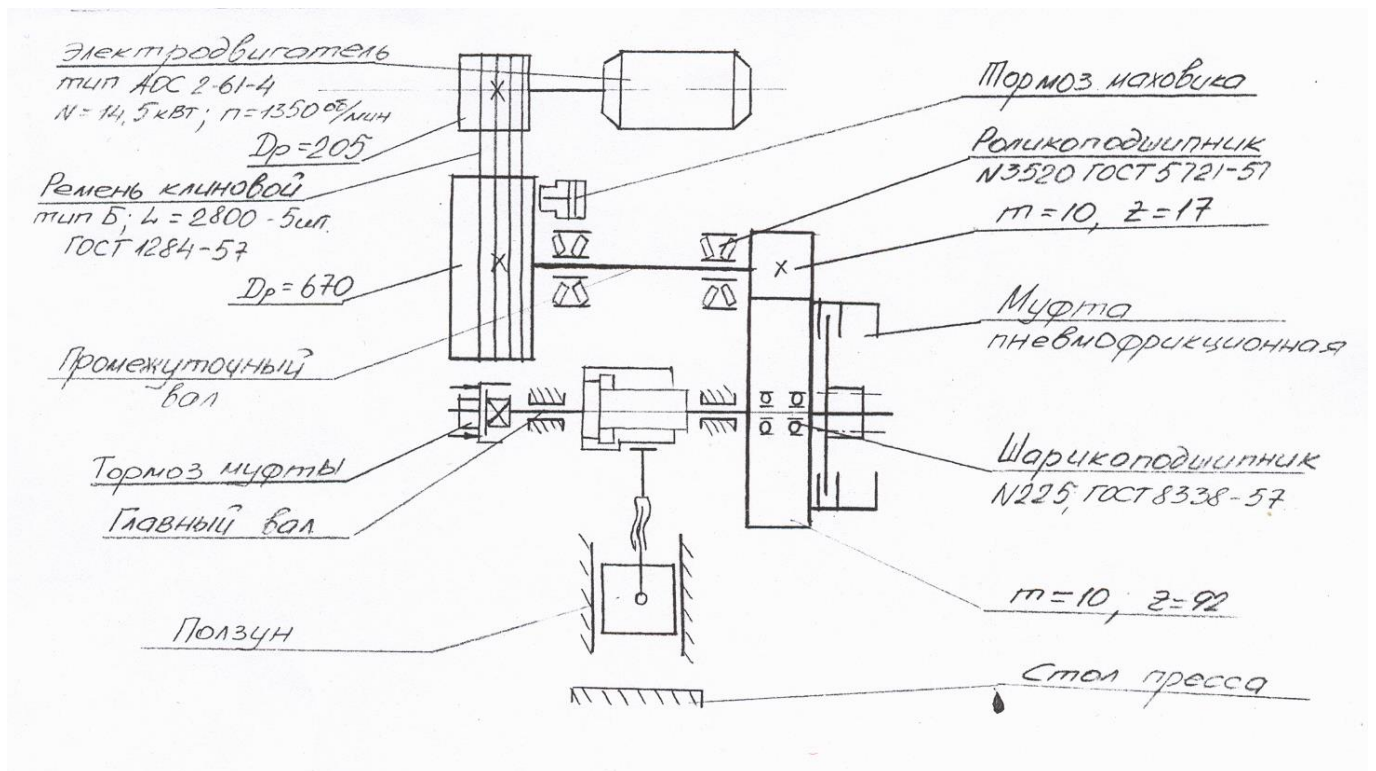 Электродвигатель
тип АОС 2-61-4
N=14,5кВт; n=1350об/мин
Dp=205
Ремень клиновой
тип Б; L=2800-5шт.
ГОСТ 1284-57
Dp=670
Промежуточный
вал
Тормоз муфты
Главный вал
Ползун
Тормоз маховика
Роликоподшипник
N3520 ГОСТ 5721-57
m=10, z=17
Муфта
пневмофрикционная
Шарикоподшипник
N225; ГОСТ 8338-57
m=10, z=92
Стол пресса